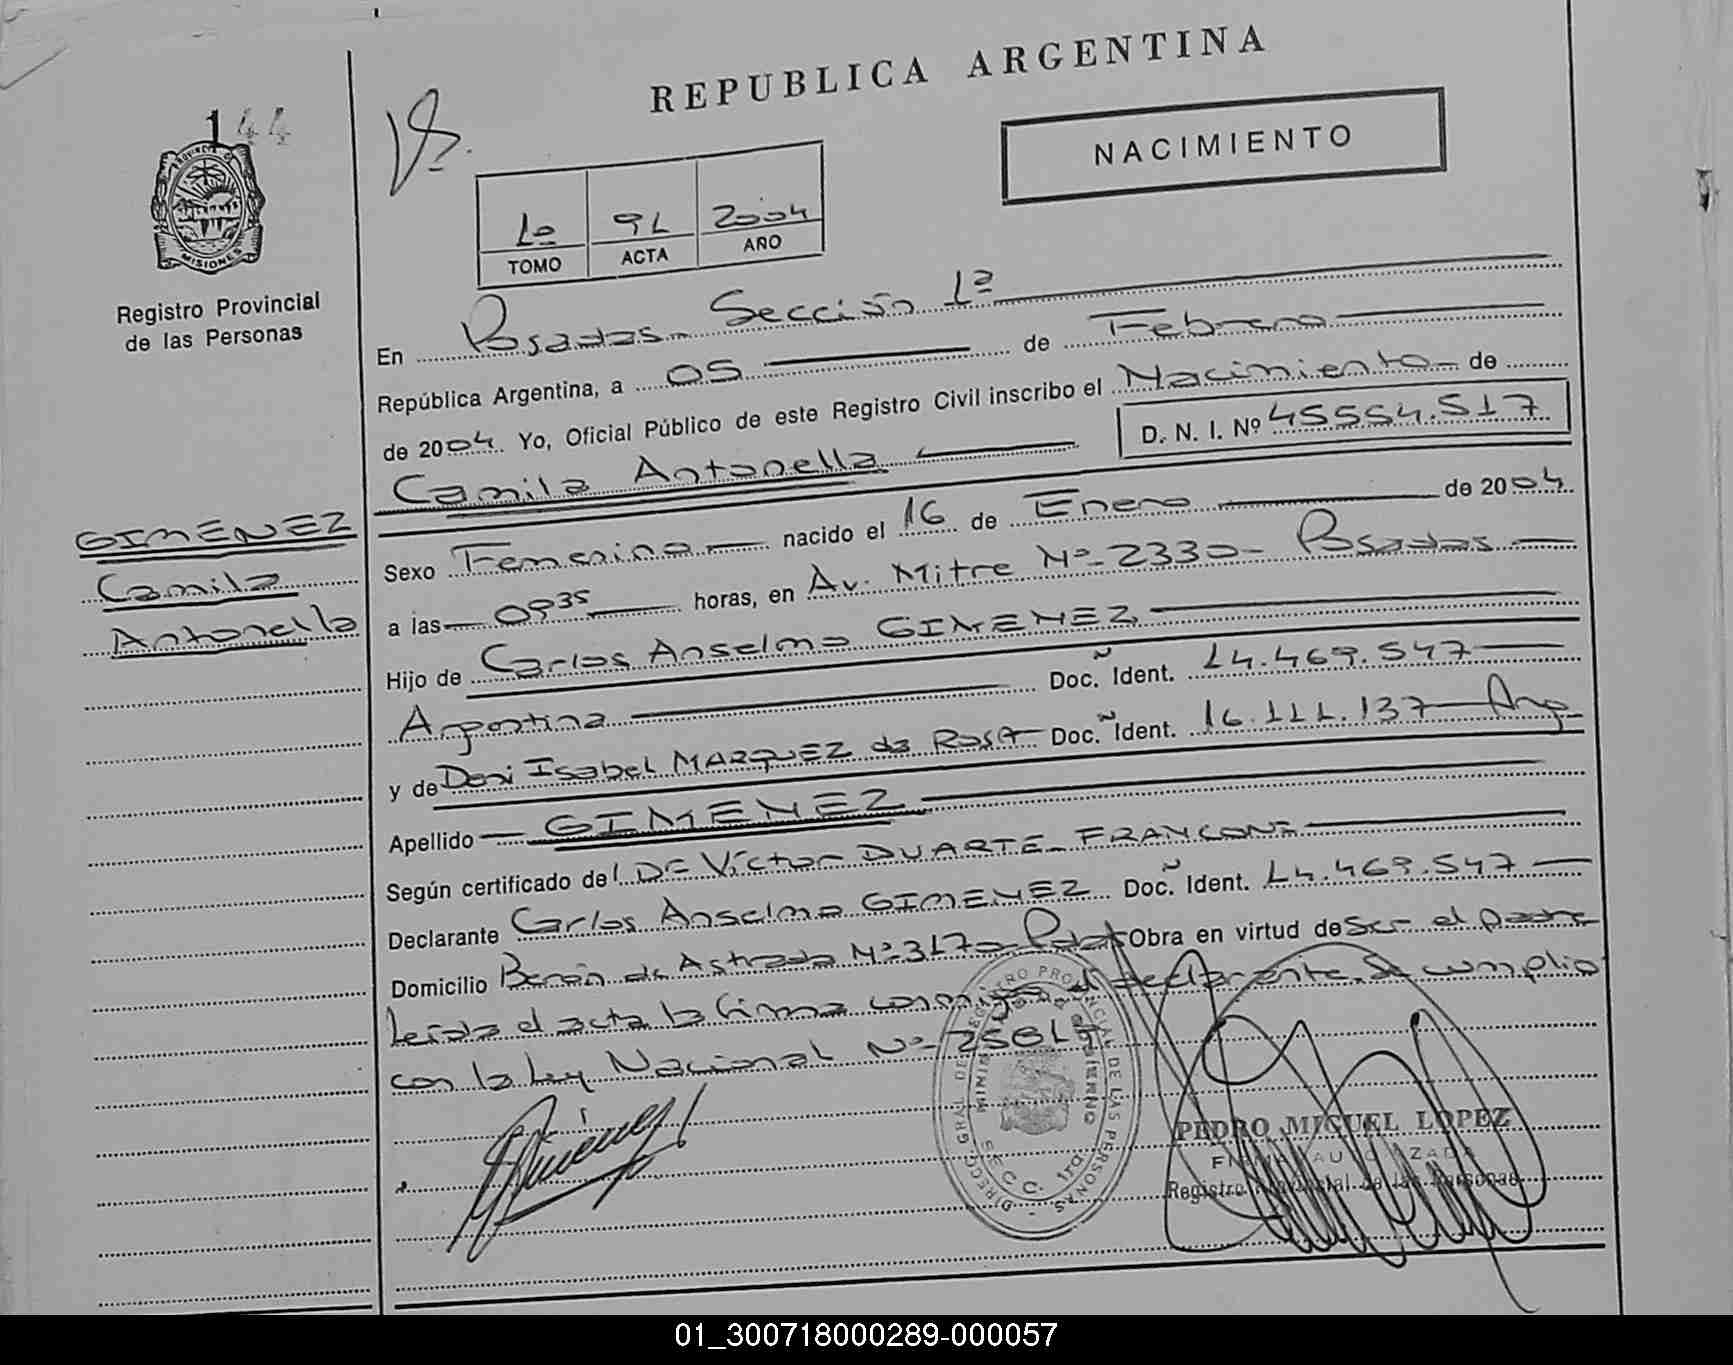 REPUBLICA ARGENTINA
NACIMIENTO
144
PROVINCIA DE
MISIONES
Registro Provincial
de las Personas
1º 91 2004
TOMO ACTA AÑO
En Posadas Sección 1ª
República Argentina, a 05 de Febrero
de 2004 Yo, Oficial Público de este Registro Civil inscribo el Nacimiento de
D. N. I. Nº 45554.517
Camila Antonella
GIMENEZ
Camila
Antonella
Sexo Femenino nacido el 16 de Enero de 2004
a las 09 35 horas, en Av. Mitre Nº 2330 Posadas
Hijo de Carlos Anselmo GIMENEZ
Argentina Doc. Ident. 14.469.547
y de Isabel MARQUEZ da ROSA Doc. Ident. 16.111.137 Arg
Apellido GIMENEZ
Según certificado del Dr Víctor DUARTE
Declarante Carlos Anselmo GIMENEZ Doc. Ident. 14.469.547
Domicilio Berón de Astrada Nº 3170 Obra en virtud de ser el padre
leída el acta la firma conmigo el declarante, se cumplio
con la ley Nacional Nº
DIRECC. GRAL. DE REGISTRO PROVINCIAL DE LAS PERSONAS
SECC. 1ra.
PEDRO MIGUEL LOPEZ
FIRMA AUTORIZADA
Registro Provincial de las Personas
01_300718000289-000057